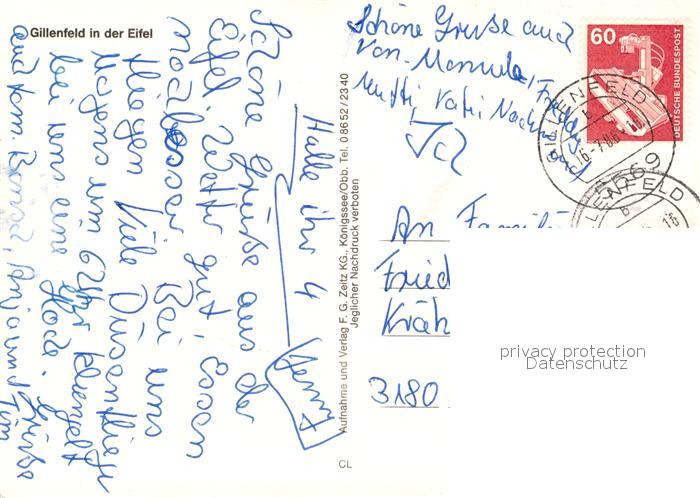 Gillenfeld in der Eifel
Hallo ihr 4
Schöne Grüße aus der
Eifel. Wetter gut. Essen
Bei uns
fliegen Viele Düsenflieger
Morgens um 6 Uhr klengelt
bei uns eine Glocke. Grüße
auch von
Anja und Tim
Henny
Aufnahme und Verlag F. G. Zeitz KG., Königssee/Obb. Tel. 08652/2340
Jeglicher Nachdruck verboten
CL
Schöne Grüße auch
von Manuela, Freddy
Mutti, Vati
An Famili
Fried
Kräh
3180
60
DEUTSCHE BUNDESPOST
GILLENFELD
b
16.-7.86-16
5569
LLENFELD
b
16
privacy protection
Datenschutz